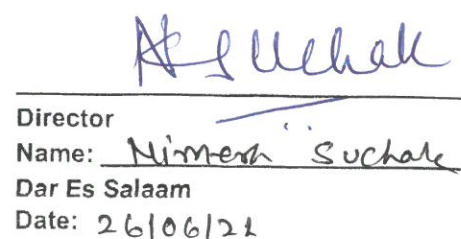 NSuchak
Director
Name: Nimesh Suchak
Dar Es Salaam
Date: 26/06/21